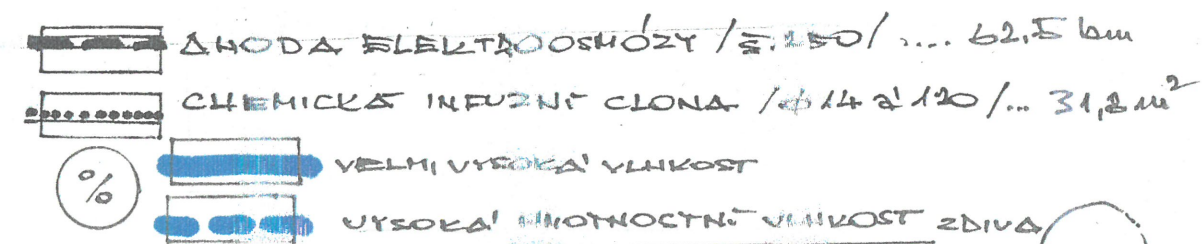 ANODA ELEKTROOSMÓZY /š.150/ .... 62,5 bm
CHEMICKÁ INFUZNÍ CLONA /ϕ 14 à 120/... 31,2 m²
% VELMI VYSOKÁ VLHKOST
VYSOKÁ HMOTNOSTNÍ VLHKOST ZDIVA